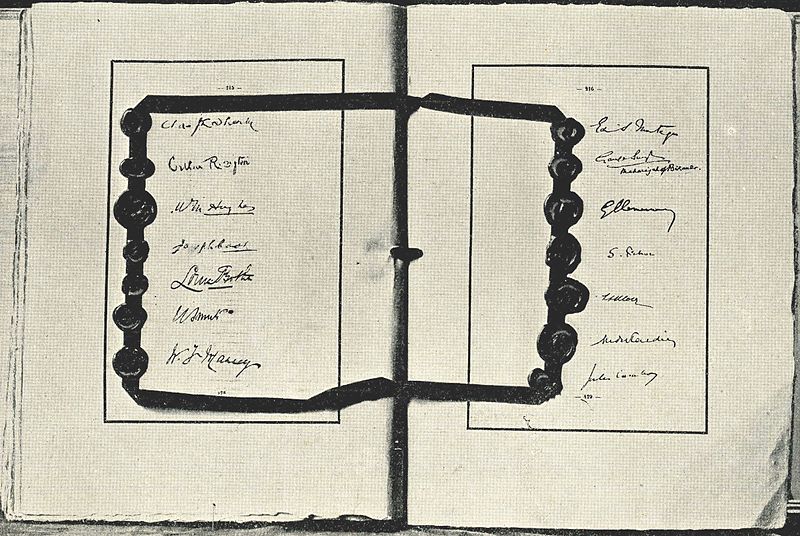 Chas J Doherty
W M Hughes
Joseph Cook
Louis Botha
W. F. Massey
— 216 —
Ed. S. Montagu
Ganga Singh
Maharaja of Bikaner.
G Clemenceau
S. Pichon
L L Klotz
André Tardieu
Jules Cambon